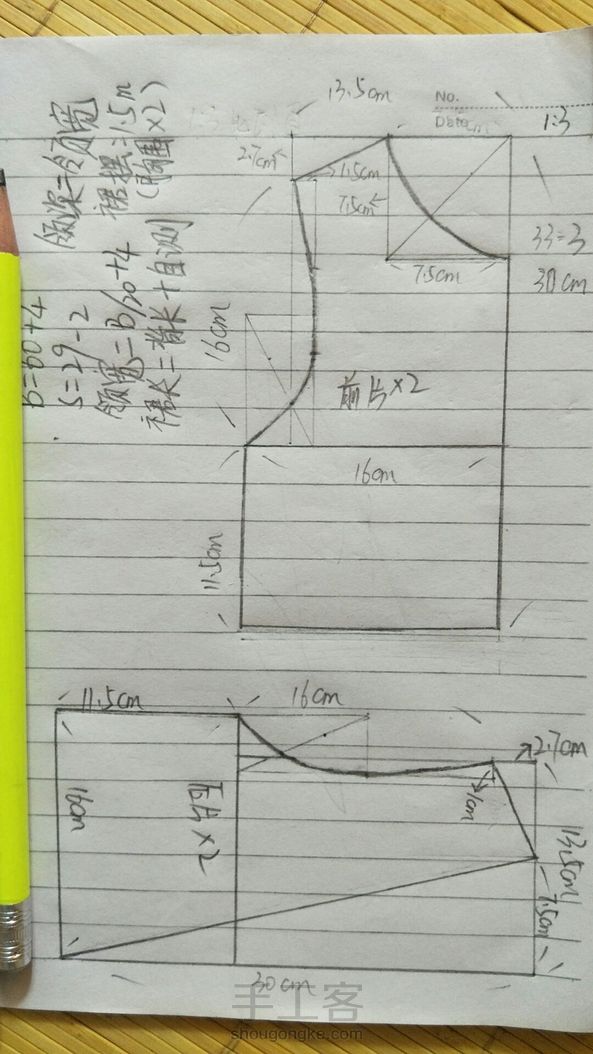 13.5cm
No.
Date
1:3
2.7cm
1.5cm
7.5cm
7.5cm
33-3
30cm
16cm
前片×2
16cm
11.5cm
B=60+4
S=29-2
领宽=B/20+4
裙长=背长+自测
领深=领宽
裙摆=1.5m
(胸围×2)
11.5cm
16cm
2.7cm
1cm
16cm
后片×2
13.5cm
7.5cm
30cm
手工客
shougongke.com